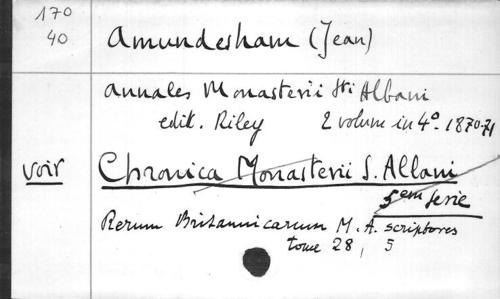 170
40
Amundesham (Jean)
Annales Monasterii Sti Albani
edit. Riley 2 volum in 4º. 1870-71
voir Chronica Monasterii S. Allani
5em serie
Rerum Britannicarum M. A. scriptores
tome 28, 5